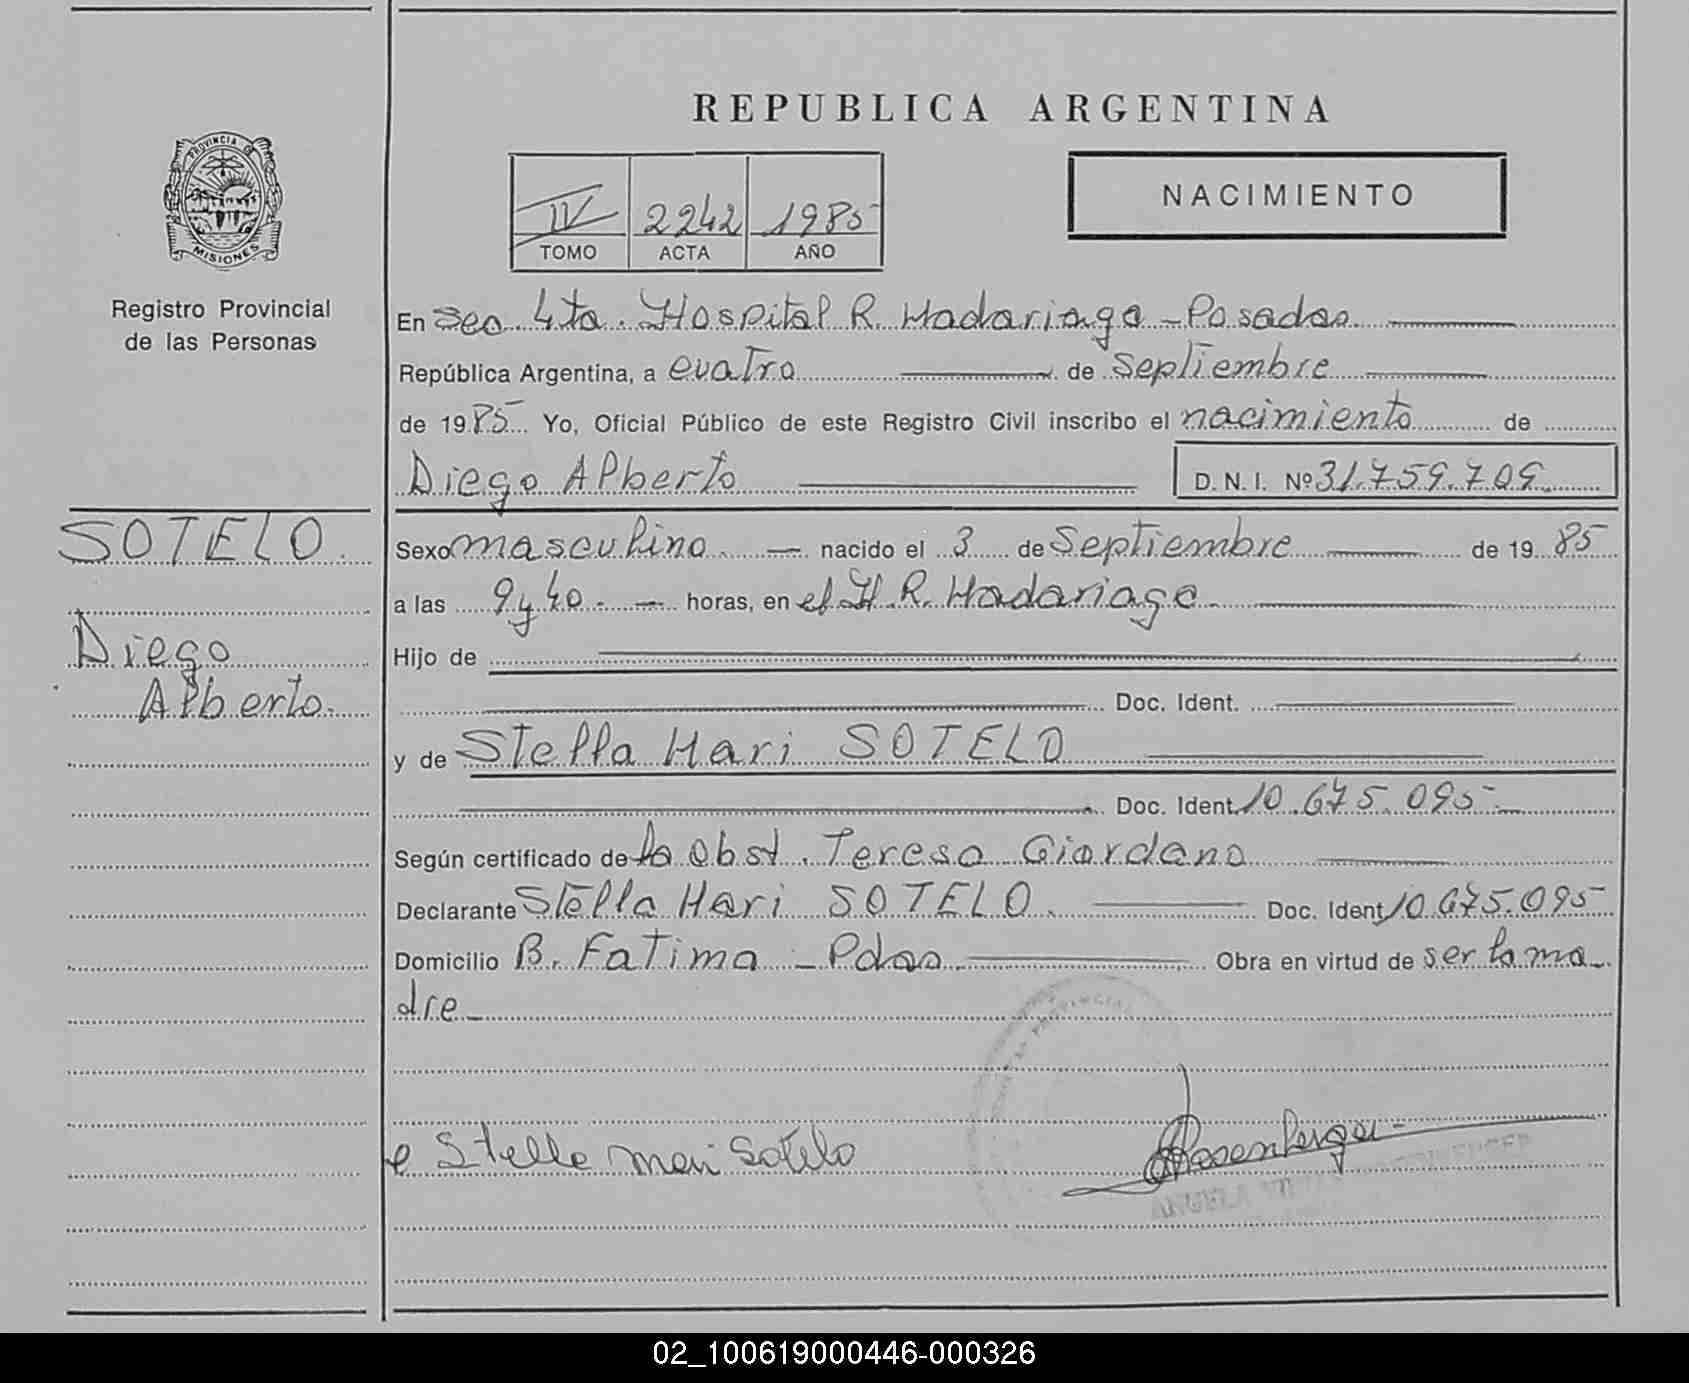 REPUBLICA ARGENTINA
PROVINCIA DE
MISIONES
Registro Provincial
de las Personas
IV 2242 1985
TOMO ACTA AÑO
NACIMIENTO
En Sec 4ta. Hospital R. Madariaga - Posadas
República Argentina, a cuatro de Septiembre
de 1985 Yo, Oficial Público de este Registro Civil inscribo el nacimiento de
Diego Alberto D. N. I. Nº 31.759.709
SOTELO.
Diego
Alberto.
Sexo masculino nacido el 3 de Septiembre de 1985
a las 9 y 40. horas, en el H. R. Madariaga
Hijo de
Doc. Ident.
y de Stella Mari SOTELO
Doc. Ident. 10.675.095
Según certificado de la obst. Teresa Giordano
Declarante Stella Mari SOTELO. Doc. Ident. 10.675.095
Domicilio B. Fatima - Pdas Obra en virtud de ser la ma
dre
Stella Mari Sotelo
Rosenberger
ANGELA
02_100619000446-000326